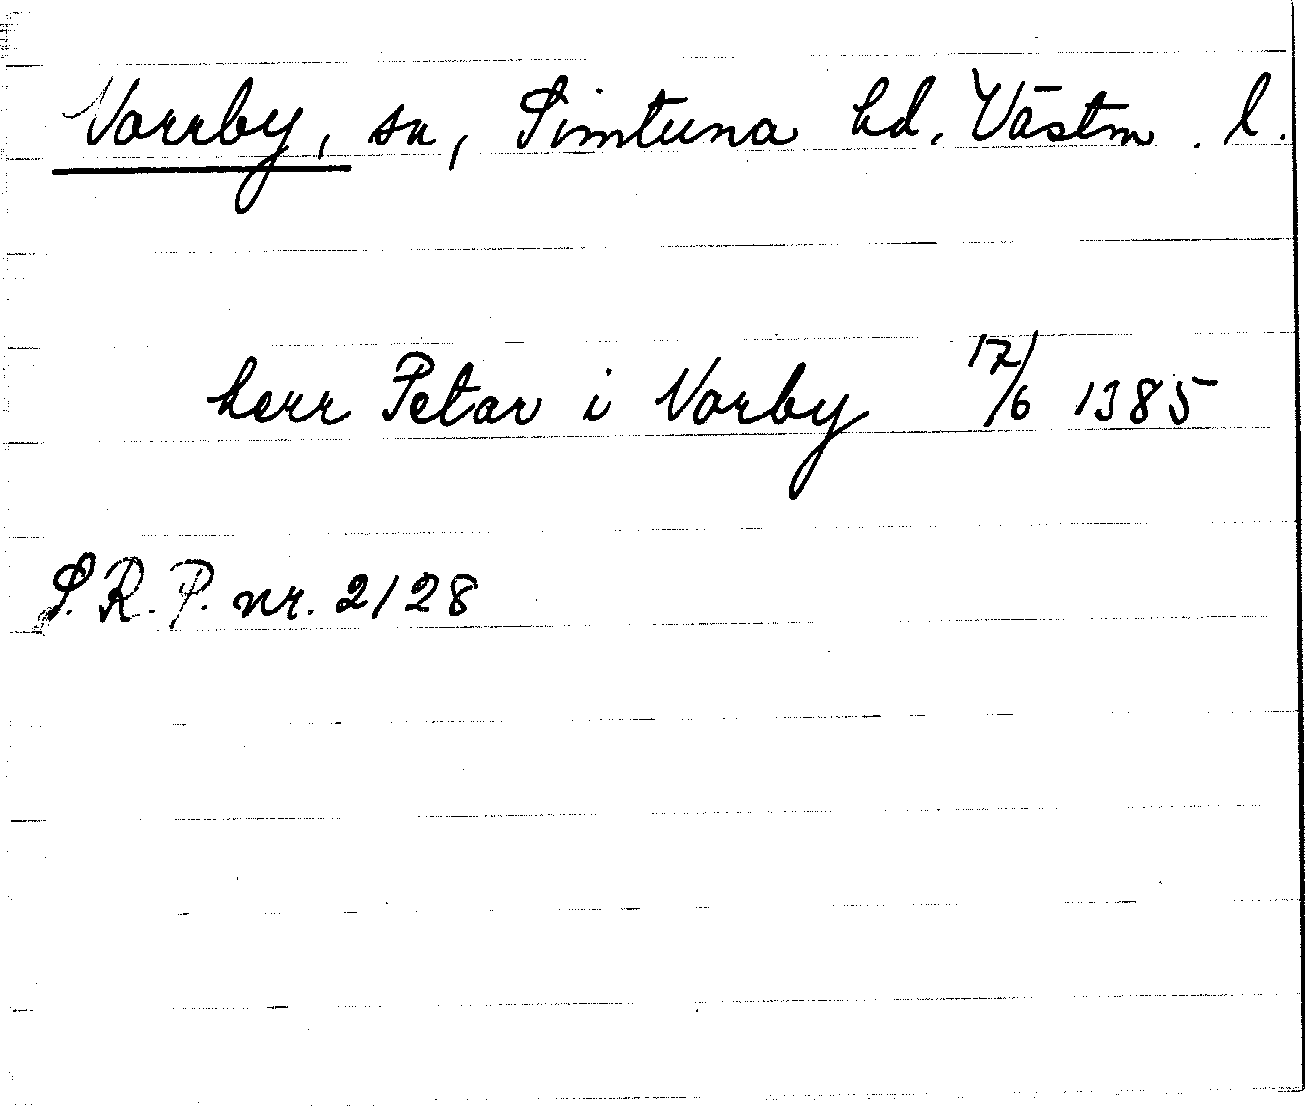 Norrby, sn, Simtuna hd. Västm. l.
herr Petar i Norby 17/6 1385
S.R.P. nr. 2128